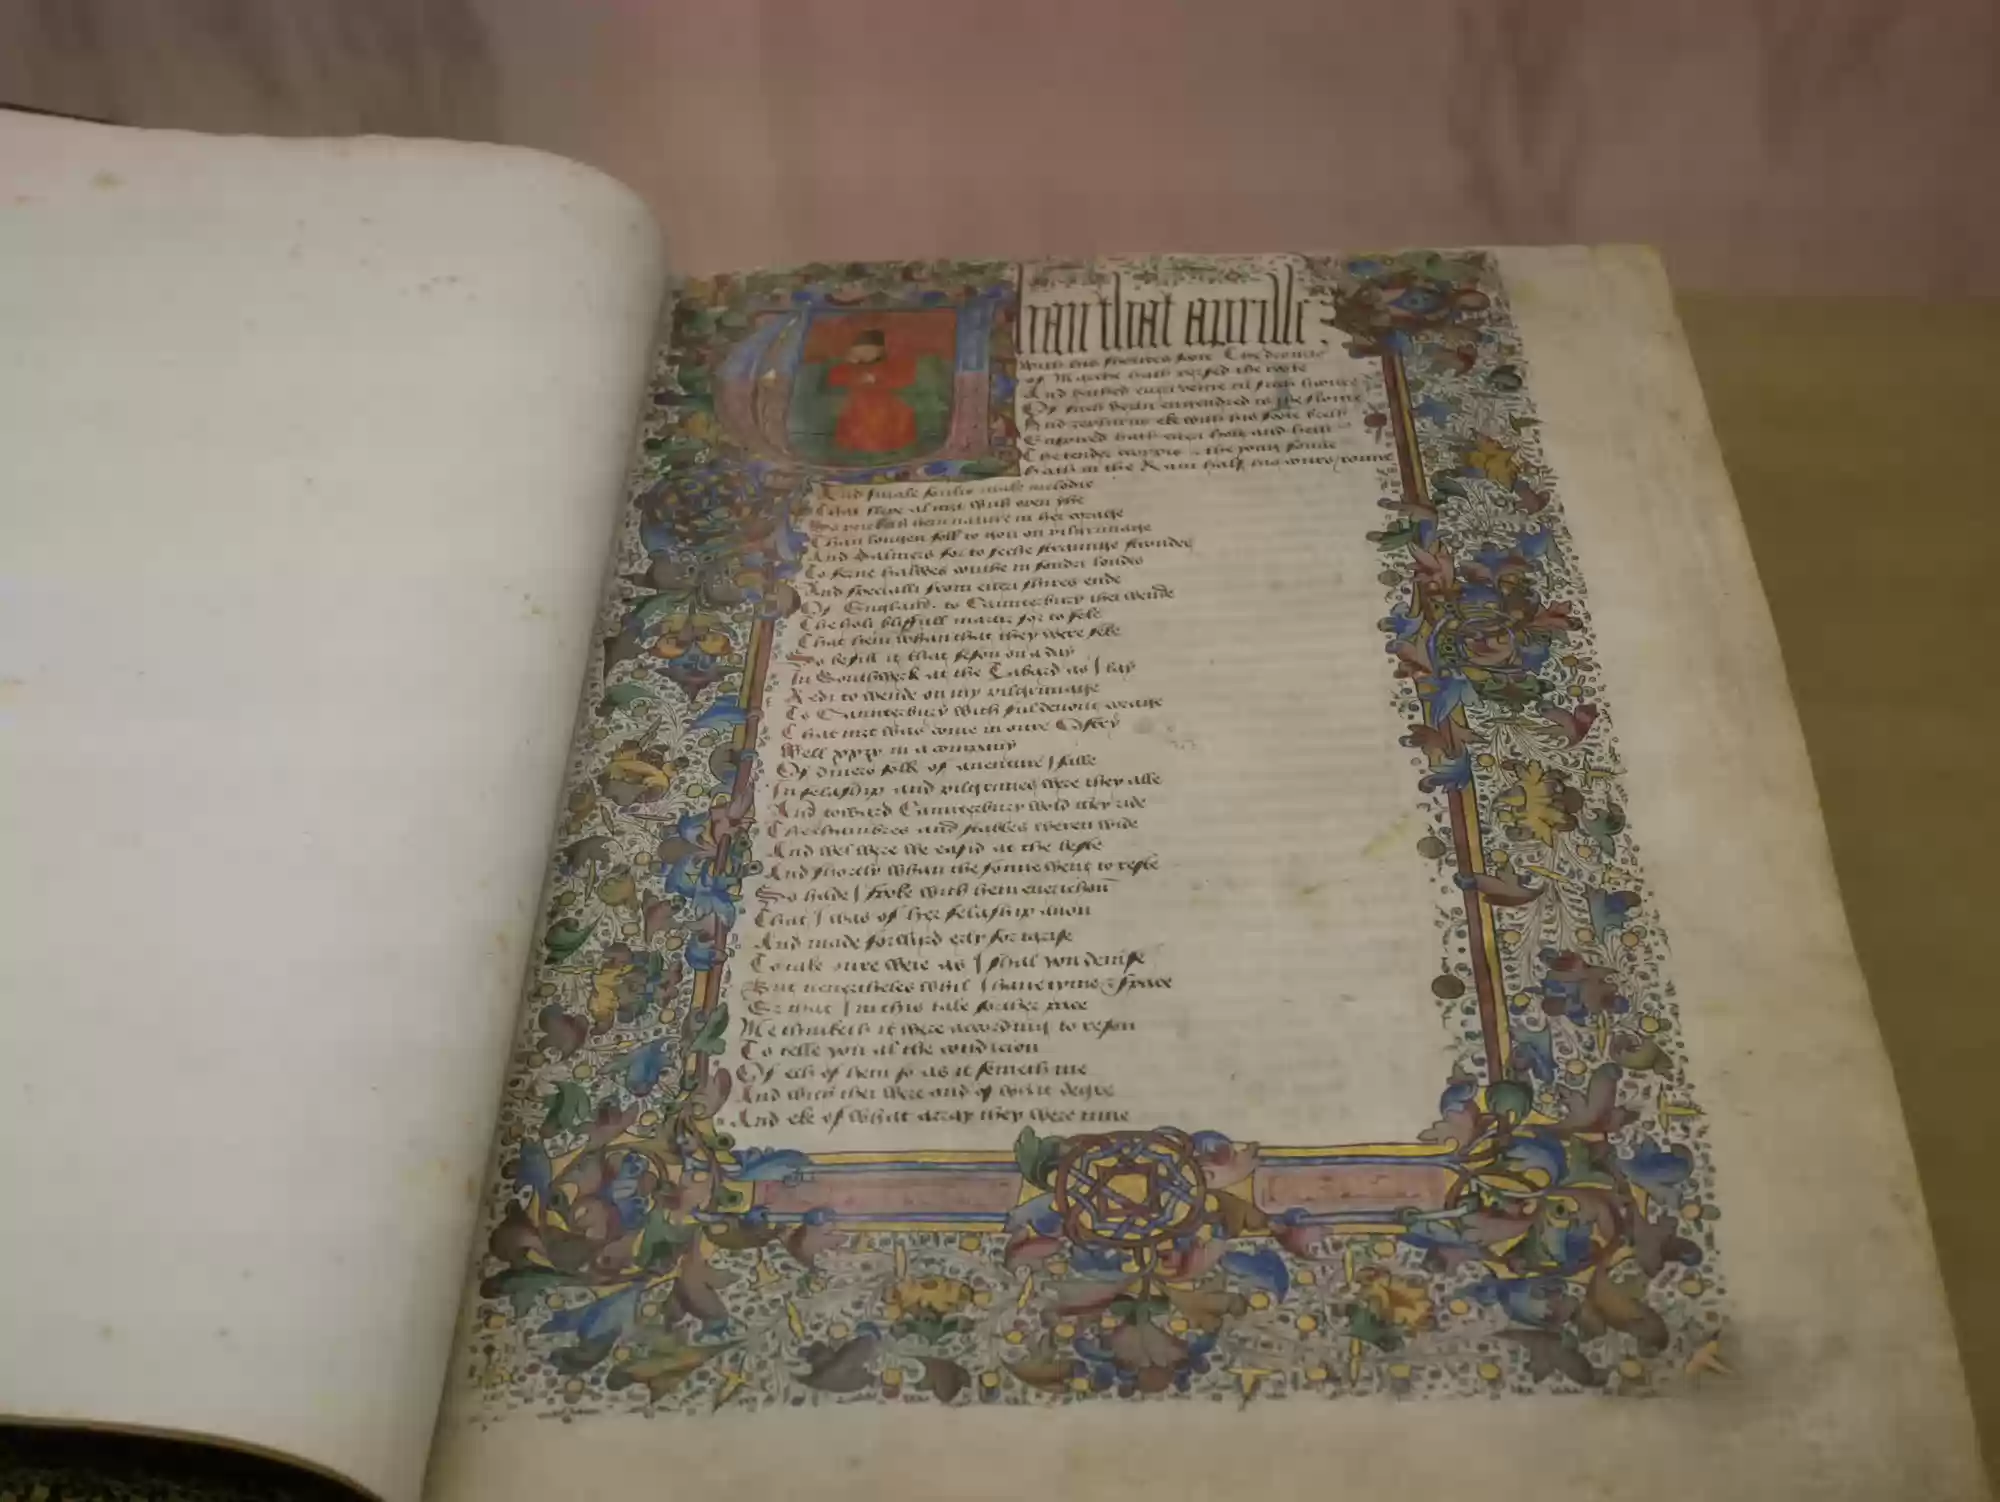 Whan that aprille
With his shoures sote The drouute
of Marche hath perced the rote
And bathed every veine in such licour
Of such vertu engendred is the floure
And zephirus eke with his sote breth
Enspired hath every holt and heth
The tender croppis the yong sonne
Hath in the Ram half his cours ronne
And smale foules make melodie
That slepe al nizt with open yhe
So priketh hem nature in her corage
Than longen folk to gon on pilgrimage
And Palmers for to seche straunge strondes
To ferne halwes couthe in sondri londes
And specialli from every shires ende
Of England to Caunterbury thei wende
The holi blissfull martir for to seke
That hem whan that they were seke
So befill it that seson on a day
In Southwerk at the Tabard as I lay
Redi to wende on my pilgrimage
To Caunterbury with ful devout corage
That nizt was come in oure Ostry
Well xxix in a company
Of divers folk of aventure I falle
In felaship and pilgrimes were they alle
And toward Caunterbury wold they ride
The chambres and stables weren wide
And wel were we easid at the beste
And shortly whan the sonne went to reste
So hade I spoke with hem everichon
That I was of her felaship anon
And made forward erly for to rise
To take oure were as I shal you devise
But nevertheles whil I have tyme & space
Er that I in this tale forther pace
Me thinketh it were acording to reson
To telle you al the condicion
Of ech of hem so as it semeth me
And wich thei were and of what degre
And eke of what array they were inne